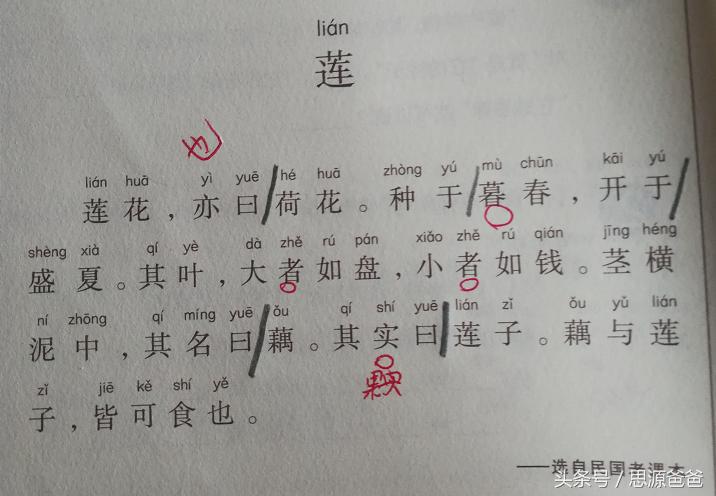 lián
莲
也
lián huā yì yuē hé huā zhòng yú mù chūn kāi yú
莲花，亦曰/荷花。种于/暮春，开于/
shèng xià qí yè dà zhě rú pán xiǎo zhě rú qián jīng héng
盛夏。其叶，大者如盘，小者如钱。茎横
ní zhōng qí míng yuē ǒu qí shí yuē lián zǐ ǒu yǔ lián
泥中，其名曰/藕。其实曰/莲子。藕与莲
果实
zǐ jiē kě shí yě
子，皆可食也。
——选自民国老课本
头条号／思源爸爸